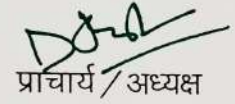 प्राचार्य / अध्यक्ष